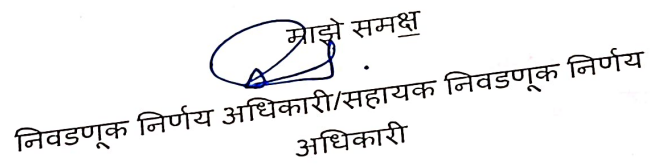 माझे समक्ष
निवडणूक निर्णय अधिकारी/सहायक निवडणूक निर्णय
अधिकारी